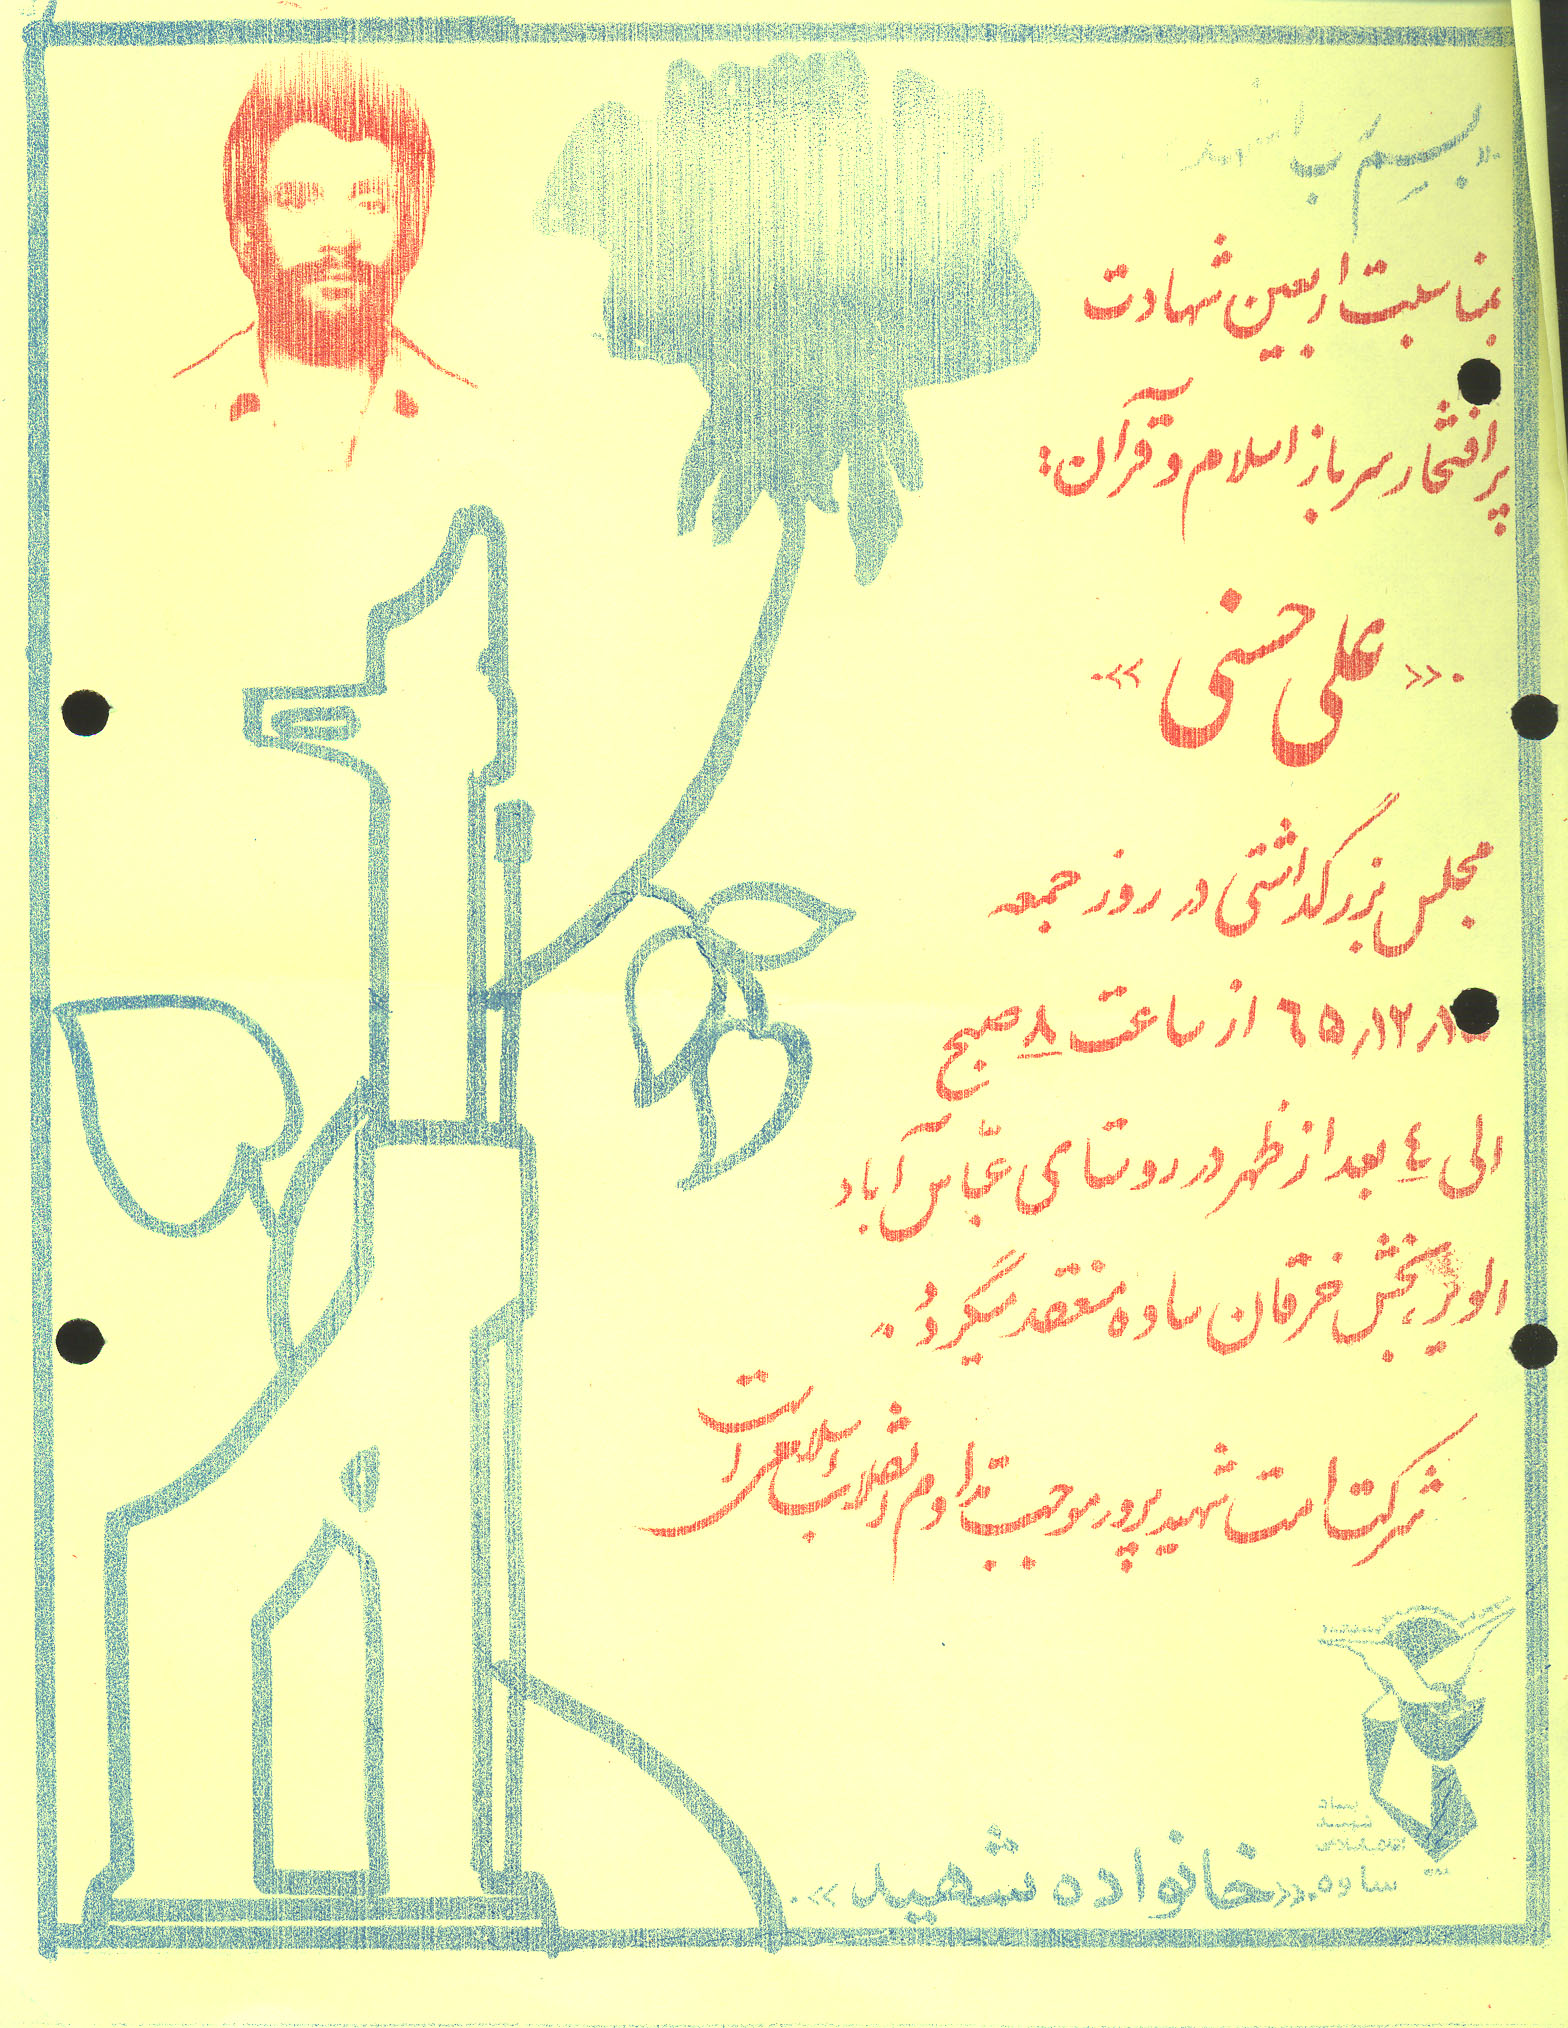 «بِسمِ رَب الشهداء
بمناسبت اربعین شهادت
پرافتخار سرباز اسلام و قرآن:
«علی حسنی»
مجلس بزرگداشتی در روز جمعه
٦٥٫١٢٫١ از ساعت ٨ صبح
الی ٤ بعد از ظهر در روستای عبّاس آباد
الویر، بخش خرقان ساوه منعقد میگردد.
شرکت امت شهیدپرور موجب تداوم انقلاب اسلامی است
بنیاد
شهید
انقلاب اسلامی
ساوه
«خانواده شهید»